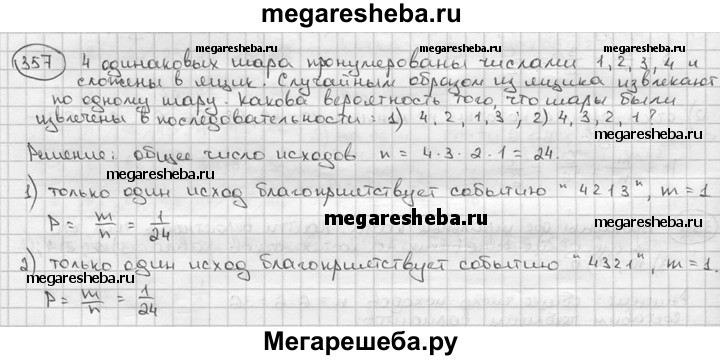 megaresheba.ru
357 4 одинаковых шара пронумерованы числами 1, 2, 3, 4 и
megaresheba.ru megaresheba.ru
сложены в ящик. Случайным образом из ящика извлекают
по одному шару. Какова вероятность того, что шары были
извлечены в последовательности: 1) 4, 2, 1, 3; 2) 4, 3, 2, 1?
megaresheba.ru megaresheba.ru
Решение: общее число исходов n = 4·3·2·1 = 24.
1) только один исход благоприятствует событию "4213", m = 1
P = m/n = 1/24
megaresheba.ru megaresheba.ru
2) только один исход благоприятствует событию "4321", m = 1.
megaresheba.ru megaresheba.ru
P = m/n = 1/24
Мегарешеба.ру